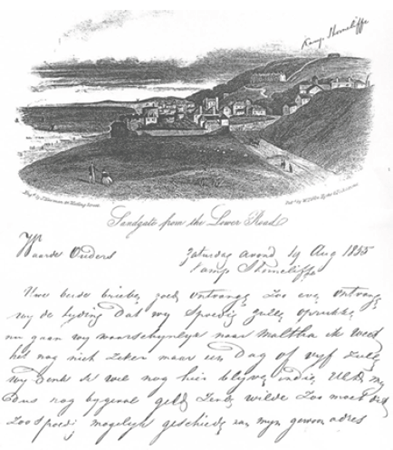 Kamp Shorncliffe
Sandgate from the Lower Road
Waarde Ouders
Zaturdag avond 19 Aug 1855
Kamp Shorncliffe
Uwe beide brieve goed ontvange Zoo eve ontvang
wy de tyding Dat wy Spoedig Zulle oprukke
nu gaan wy waarschynlyk naar Maltha ik weet
het nog niet Zeker maar een Dag of vyf Zulle
wy Denk ik ook nog hier blyve indie
Dus nog bygeval geld Zende wilde Zoo moet dit
Zoo Spoedig mogelyk geschiede aan myn gewoon adres